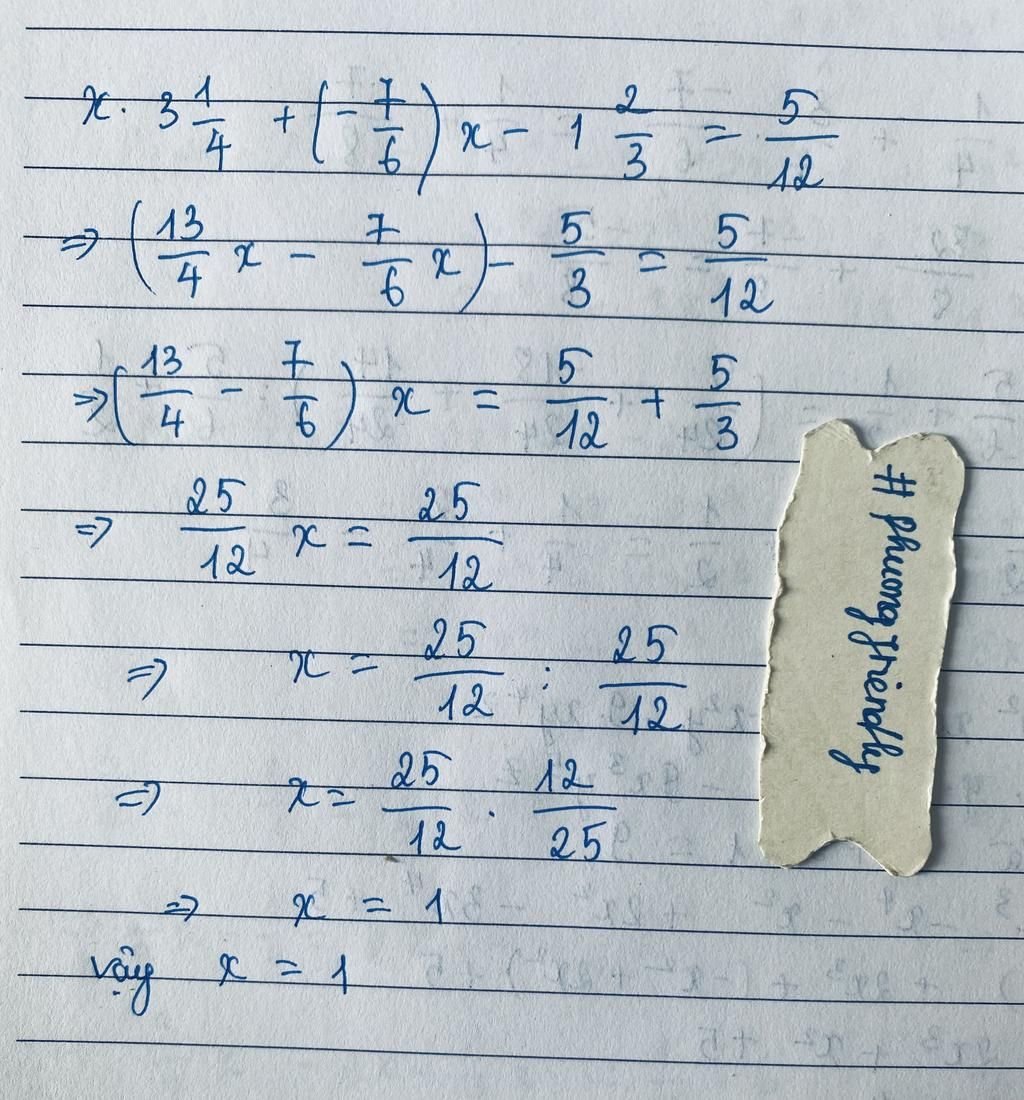 x. 3 1/4 + (- 7/6) x - 1 2/3 = 5/12
=> (13/4 x - 7/6 x) - 5/3 = 5/12
=> (13/4 - 7/6) x = 5/12 + 5/3
=> 25/12 x = 25/12
=> x = 25/12 : 25/12
=> x = 25/12 . 12/25
=> x = 1
vậy x = 1
# phuongfriendly